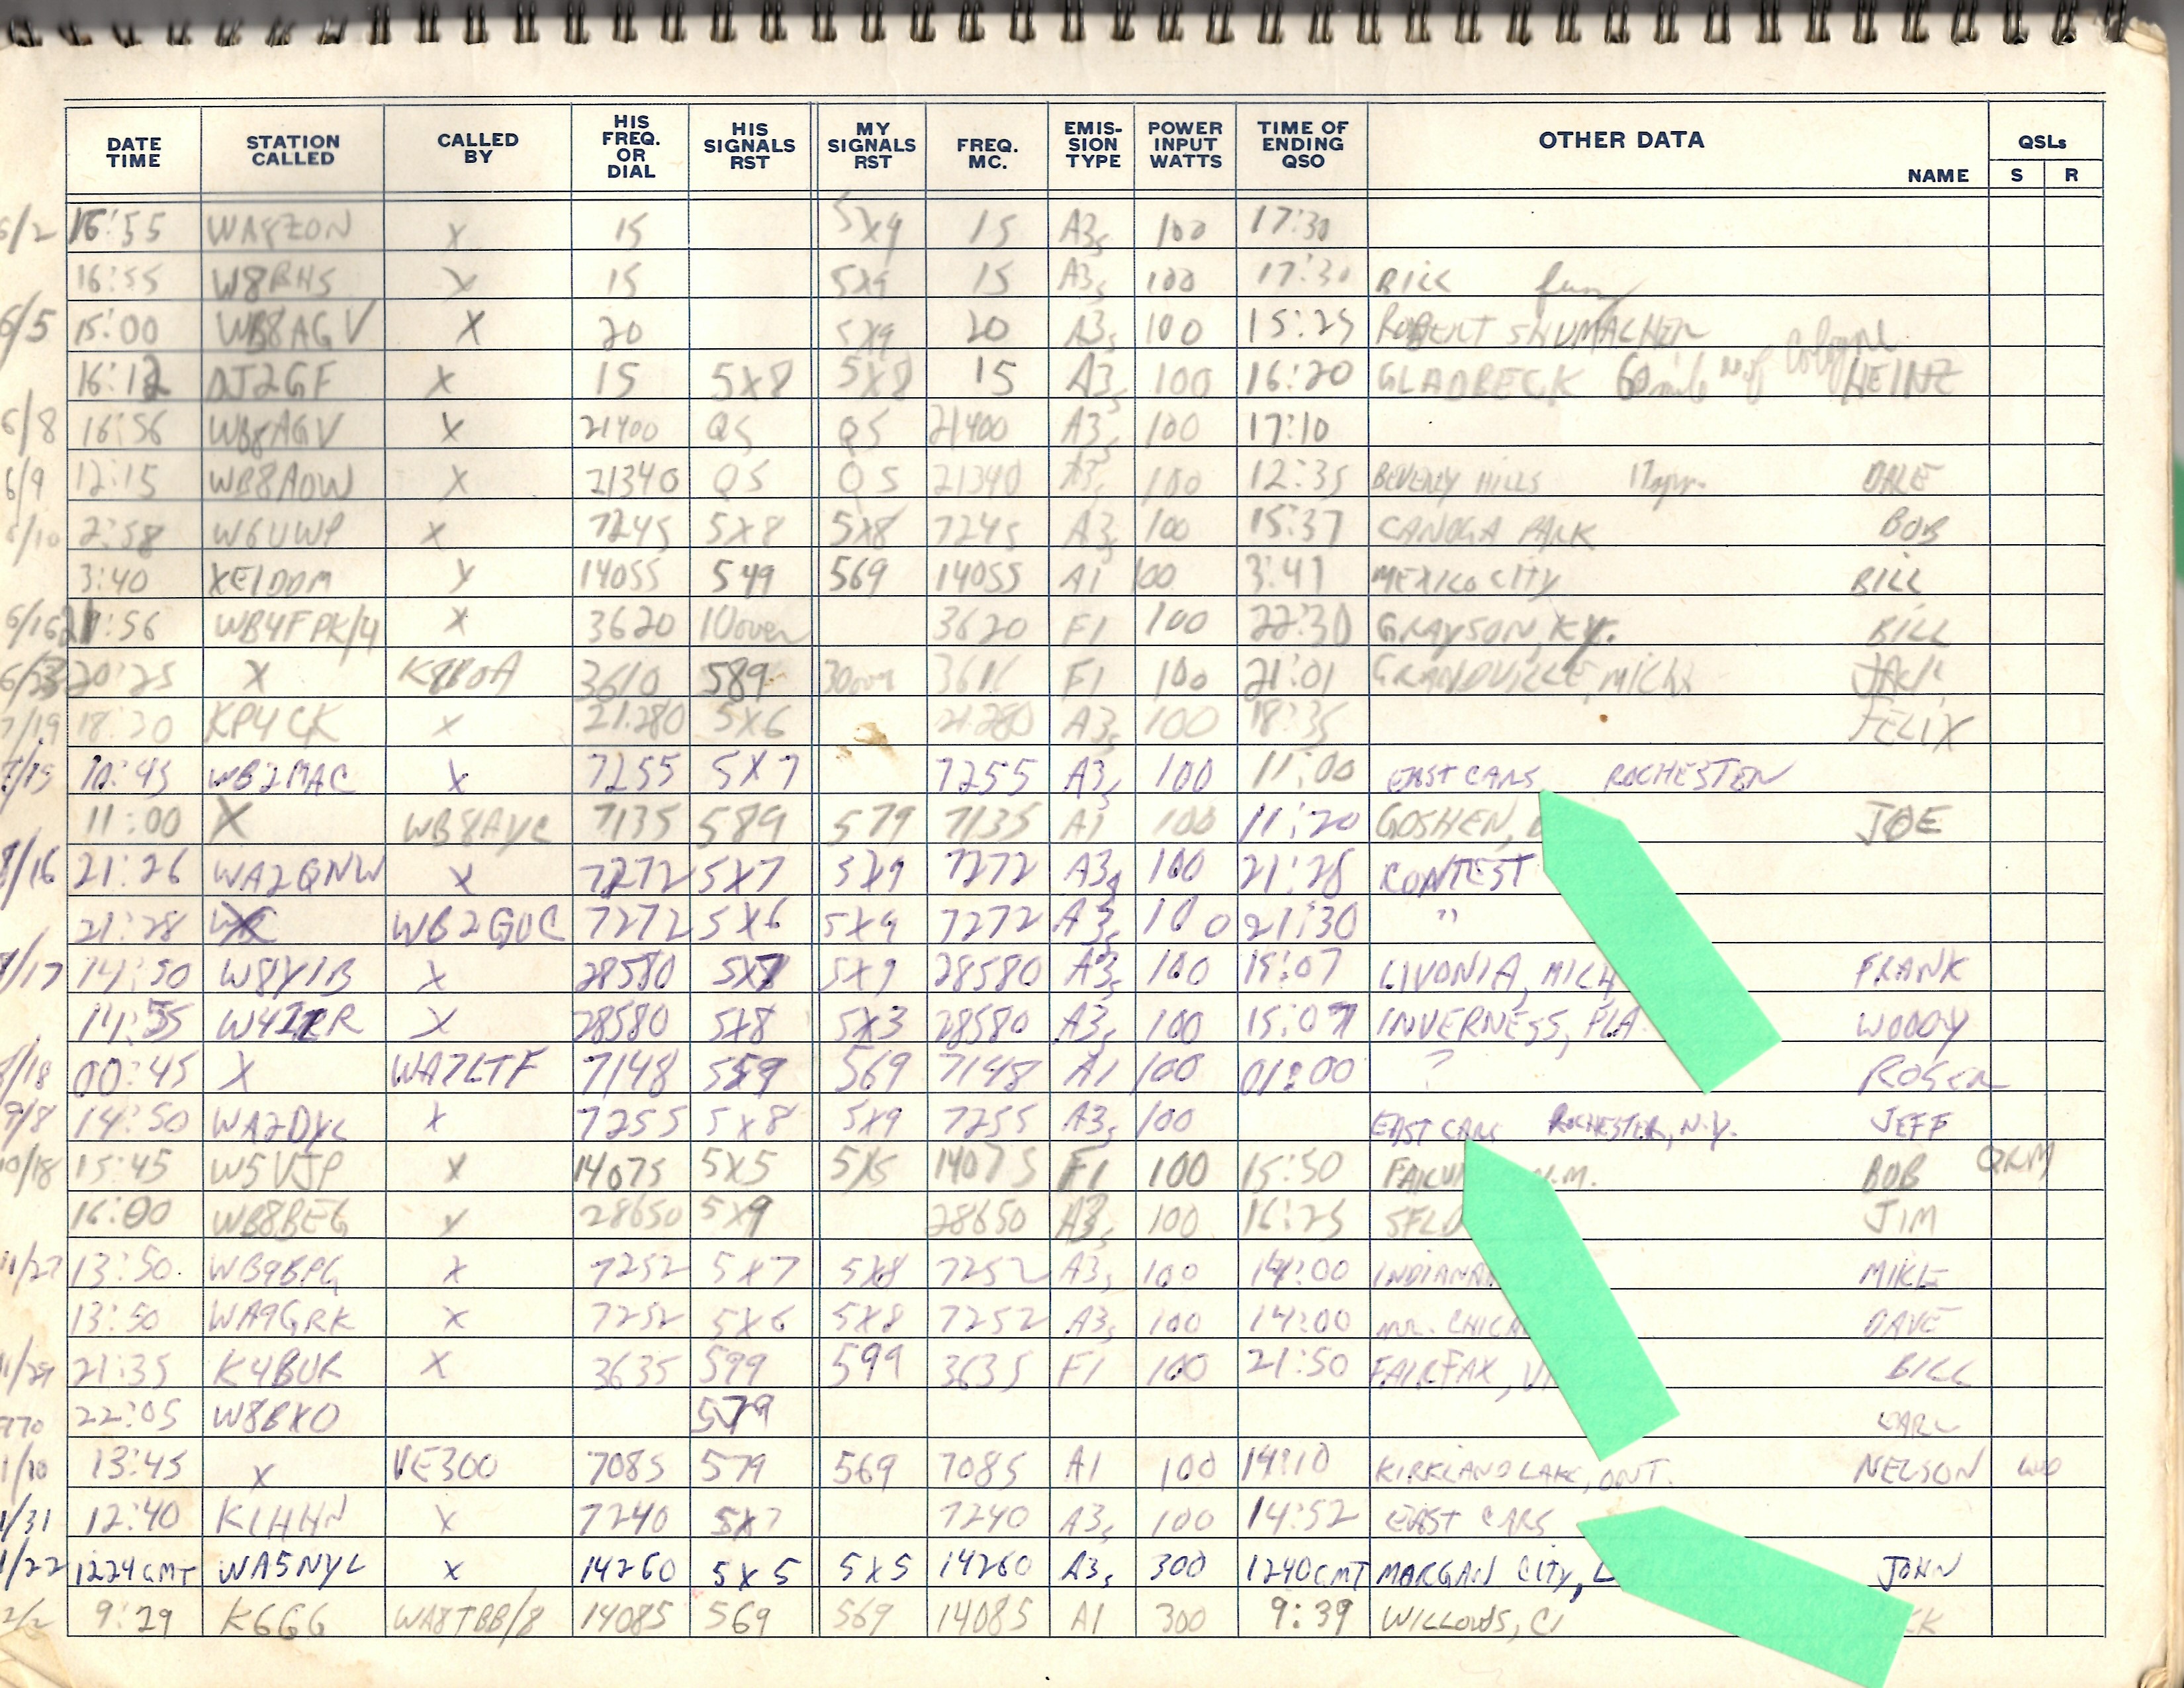 DATE TIME STATION CALLED CALLED BY HIS FREQ. OR DIAL HIS SIGNALS RST MY SIGNALS RST FREQ. MC. EMIS-SION TYPE POWER INPUT WATTS TIME OF ENDING QSO OTHER DATA NAME QSLs S R
6/2 16:55 WA8ZON X 15 5X9 15 A3s 100 17:30
16:55 W8BHS X 15 5X9 15 A3s 100 17:30 BILL
6/5 15:00 WB8AGV X 20 5X9 20 A3s 100 15:25 ROBERT SHUMACHER
16:12 DJ2GF X 15 5X8 5X8 15 A3s 100 16:20 GLADBECK 60 mile of Cologne HEINZ
6/8 16:56 WB8AGV X 21400 Q5 Q5 21400 A3s 100 17:10
6/9 12:15 WB8AOW X 21340 Q5 Q5 21340 A3s 100 12:35 BEVERLY HILLS DALE
6/10 2:58 W6UWP X 7245 5X8 5X8 7245 A3s 100 15:37 CANOGA PARK BOB
3:40 XE1DDM X 14055 549 569 14055 A1 100 3:41 MEXICO CITY BILL
6/16 21:56 WB4FPK/4 X 3620 10 over 3620 F1 100 22:30 GRAYSON, KY. BILL
20:25 X 3610 589 30 over F1 100 21:01 GRANDVILLE, MICH JACK
7/19 18:30 KP4CK X 21.280 5X6 21.280 A3s 100 18:35 FELIX
10:45 WB2MAC X 7255 5X7 7255 A3s 100 11:00 EAST CARS ROCHESTER
11:00 X WB8AYC 7135 589 579 7135 A1 100 11:20 GOSHEN, JOE
8/16 21:26 WA2QNW X 7272 5X7 5X9 7272 A3s 100 21:28 CONTEST
21:28 WB2GUC 7272 5X6 5X9 7272 A3s 100 21:30 "
8/17 14:50 W8YIB X 28580 5X8 5X9 28580 A3s 100 15:07 LIVONIA, MICH FRANK
14:55 W4IZR X 28580 5X8 5X3 28580 A3s 100 15:07 INVERNESS, FLA WOODY
8/18 00:45 X WA7LTF 7148 559 569 7148 A1 100 01:00 ? ROGER
9/8 14:50 WA2DYC X 7255 5X8 5X9 7255 A3s 100 EAST CARS ROCHESTER, N.Y. JEFF
10/18 15:45 W5VJP X 14075 5X5 5X5 14075 F1 100 15:50 N.M. BOB QRM
16:00 WB8BEG X 28650 5X9 28650 A3s 100 16:25 SFLD JIM
11/27 13:50 WB9BPG X 7252 5X7 5X8 7252 A3s 100 14:00 MIKE
13:50 WA9GRK X 7252 5X6 5X8 7252 A3s 100 14:00 nr. CHICA DAVE
11/29 21:35 K4BUR X 3635 599 599 3635 F1 100 21:50 FAIRFAX, V BILL
22:05 W8BXO 579 CARL
1/10 13:45 X VE3OO 7085 579 569 7085 A1 100 14:10 KIRKLAND LAKE, ONT. NELSON
1/31 12:40 K1HHN X 7240 5X7 7240 A3s 100 14:52 EAST CARS
1/22 1224GMT WA5NYL X 14260 5X5 5X5 14260 A3s 300 1240GMT MORGAN CITY, L JOHN
2/2 9:29 K6GG WA8TBB/8 14085 569 569 14085 A1 300 9:39 WILLOWS, CK